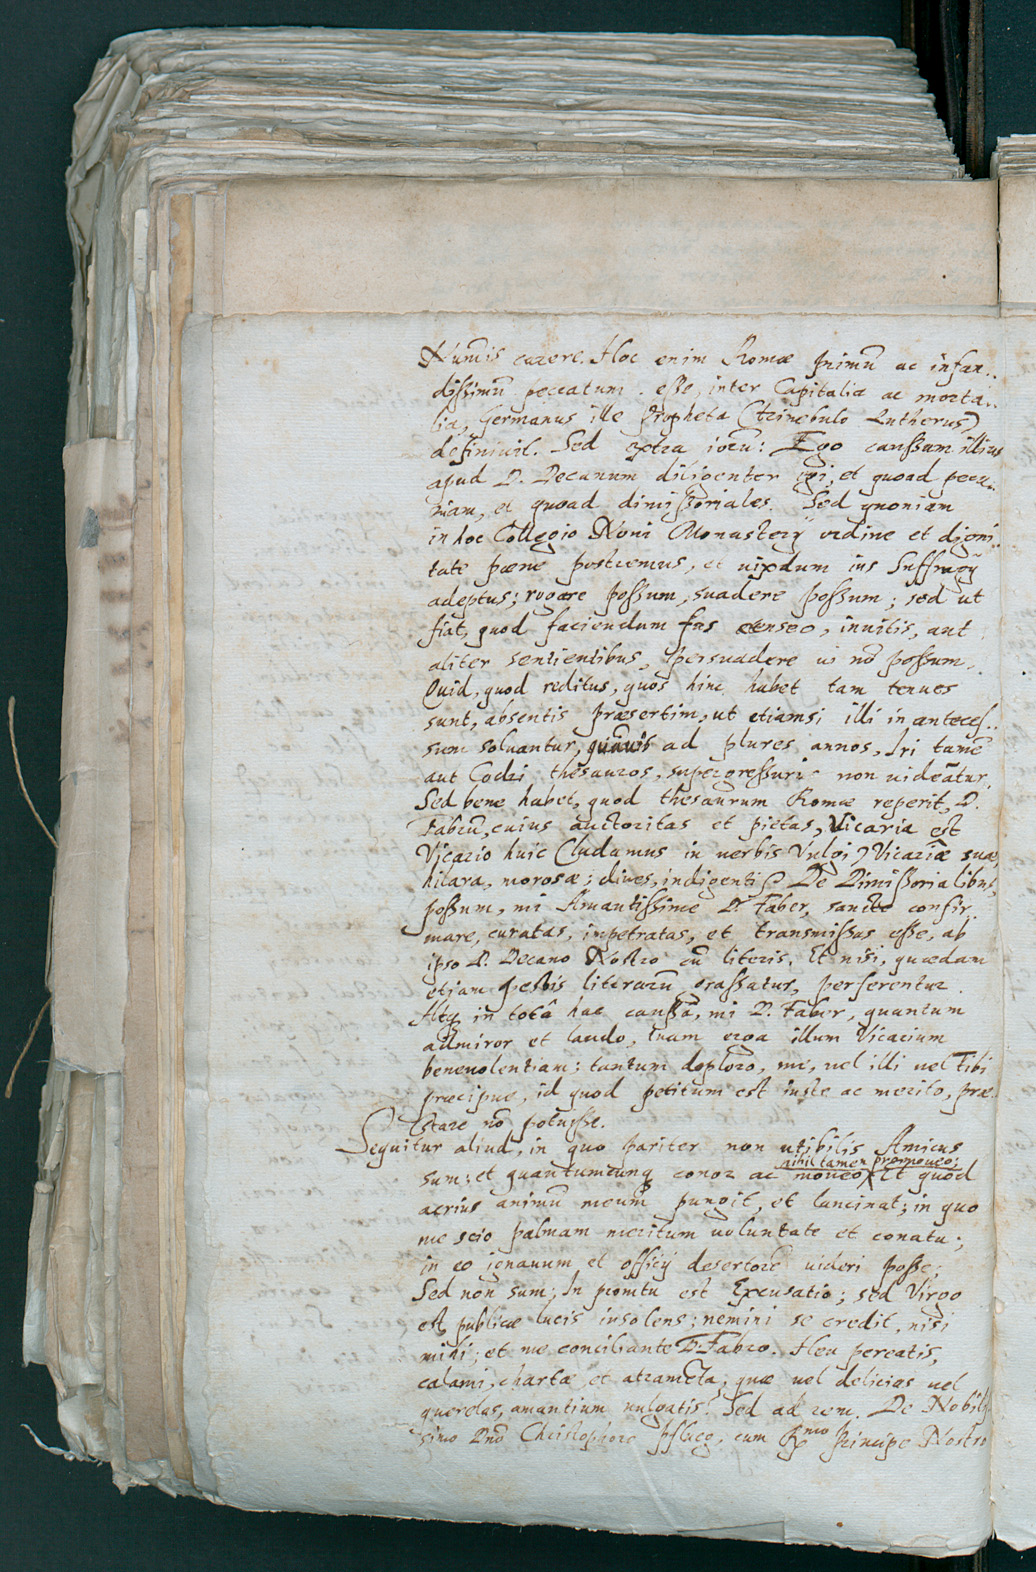 Num̃is carere. Hoc enim Romæ primũ ac infan..
dissimũ peccatum esse, inter Capitalia ac morta..
lia, Germanus ille Propheta (trinebulo Lutherus)
definiuit. Sed extra iocũ: Ego caussam illius
apud D. Decanum diligenter egi, et quoad pecu..
niam, et quoad dimissoriales. Sed quoniam
in hoc Collegio Noui Monasterij ordine et digni.
tate pæne postremus, et uixdum ius Suffragij
adeptus; rogare possum, suadere possum; sed ut
fiat, quod faciendum fas censeo, inuitis, aut
aliter sentientibus, persuadere nõ possum.
Quid, quod reditus, quos hinc habet tam tenues
sunt, absentis præsertim, ut etiamsi illi in anteces..
sum soluantur, quamuis ad plures annos, Iri tamẽ
aut Codri thesauros, supergressuri non uideãtur.
Sed bene habet, quod thesaurum Romæ reperit, D.
Fabrũ, cuius auctoritas et pietas, Vicaria est
Vicario huic (ludamus in uerbis Vulgi) Vicariæ suæ,
hilara, morosæ; diues, indigenti. De Dimissorialibus,
possum, mi Amantissime D. Faber, sancte confir
mare, curatas, inpetratas, et transmissas esse, ab
ipso D. Decano Nostro cũ literis. Et nisi, quædam
etiam pestis literarũ grassatur, perferentur.
Atq. in totâ hac caussâ, mi D. Faber, quantum
admiror et laudo, tuam erga illum Vicarium
beneuolentiam: tantum deploro, me, uel illi uel Tibi
præcipue, id quod petitum est iuste ac merito, præ
stare nõ potuisse.
Sequitur aliud, in quo pariter non utibilis Amicus
nihil tamen promoueo;
sum; et quantumcunq conor ac moueo. Et quod
acrius animũ meum pungit, et lancinat; in quo
me scio palmam meritum uoluntate et conatu;
in eo ignauum et officij desertorẽ uideri posse;
Sed non sum; In promtu est Excusatio; sed Virgo
est, publicæ lucis insolens; nemini se credit, nisi
mihi; et me conciliante D. Fabro. Heu pereatis,
calami, chartæ, et atramẽta; quæ uel delicias uel
querelas, amantium uulgatis! Sed ad rem. De Nobilis
simo Dnõ Christophoro Pflueg, cum Rmo Principe Nostro